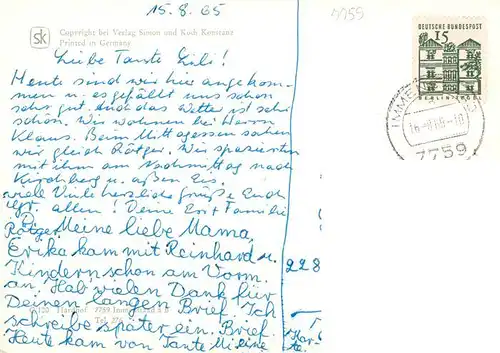 15.8.65
7759
Copyright bei Verlag Simon und Koch Konstanz
Printed in Germany
sk
DEUTSCHE BUNDESPOST
15
BERLIN-TEGEL
7759
Liebe Tante Lili!
Heute sind wir hier angekom-
men u. es gefällt uns schon
sehr gut. Auch das Wetter ist sehr
schön. Wir wohnen bei Herrn
Klaus. Beim Mittagessen sahen
wir gleich Röttger. Wir spazierten
mit ihm am Nachmittag nach
Kirchberg u. aßen Eis.
viele herzliche Grüße Euch
allen! Deine Familie
Röttger
Meine liebe Mama,
Erika kam mit Reinhard u.
Kindern schon am Vorm.
an. Hab vielen Dank für
Deinen langen Brief. Ich
schreibe später ein. Brief.
Heute kam von Tante Mi eine
228
Kar
te.
7759